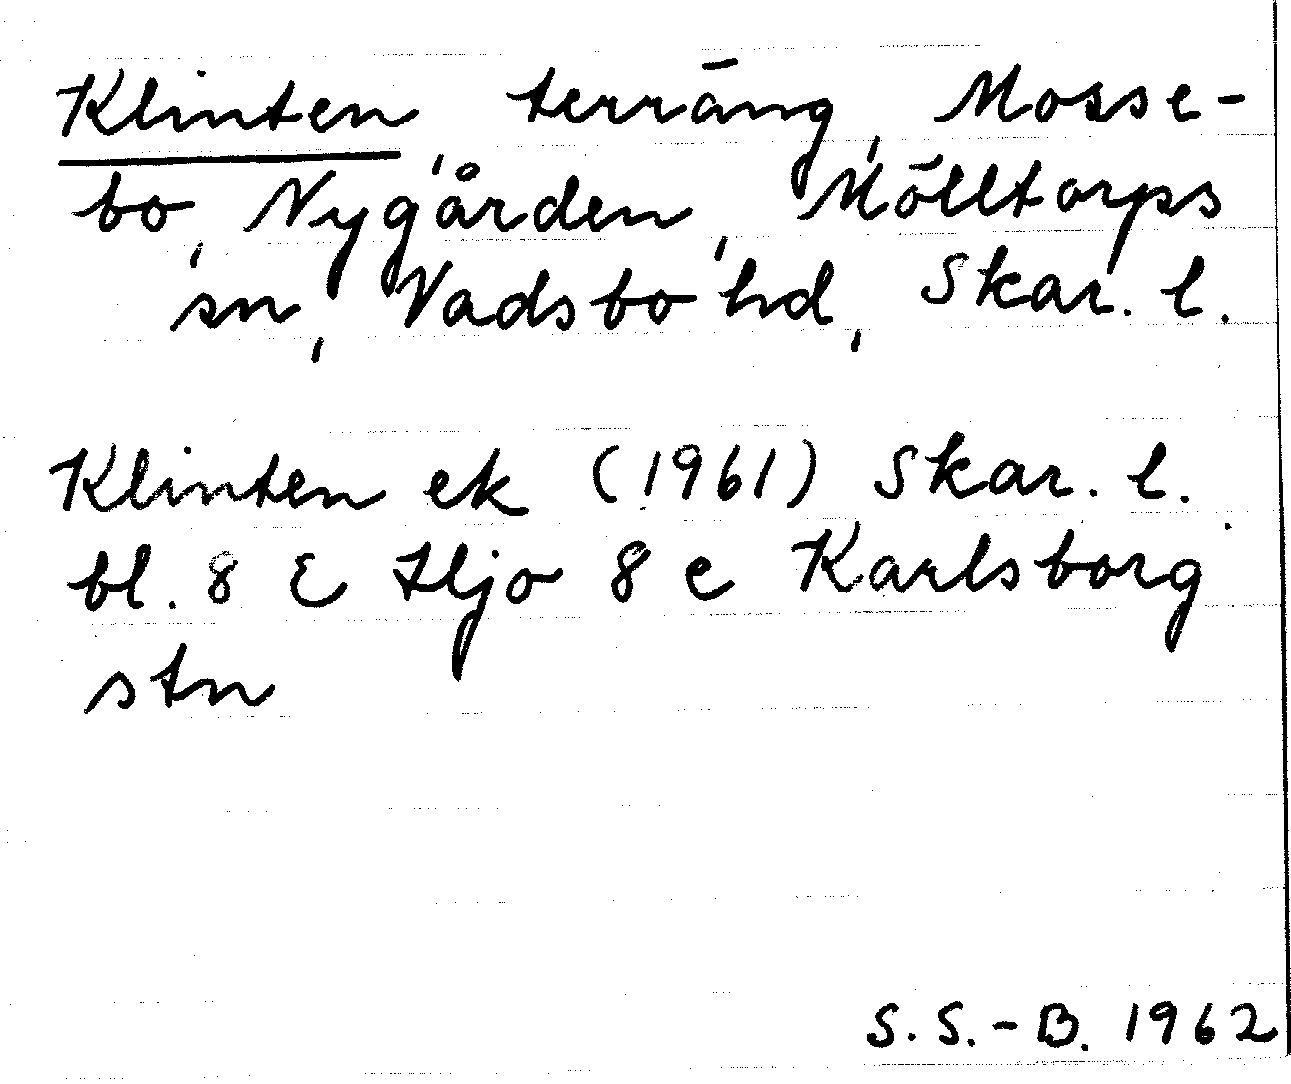 Klinten, terräng, Mosse-
bo, Nygården, Mölltorps
sn, Vadsbo hd, Skar. l.
Klinten ek (1961) Skar. l.
bl. 8 E Hjo 8 e Karlsborg
stn
S.S.-B. 1962